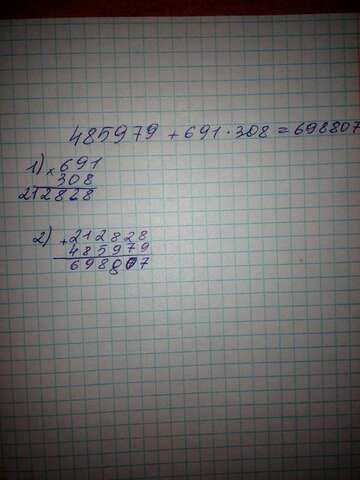 485979 + 691 · 308 = 698807
1) × 691
308
212828
2) + 212828
485979
698807